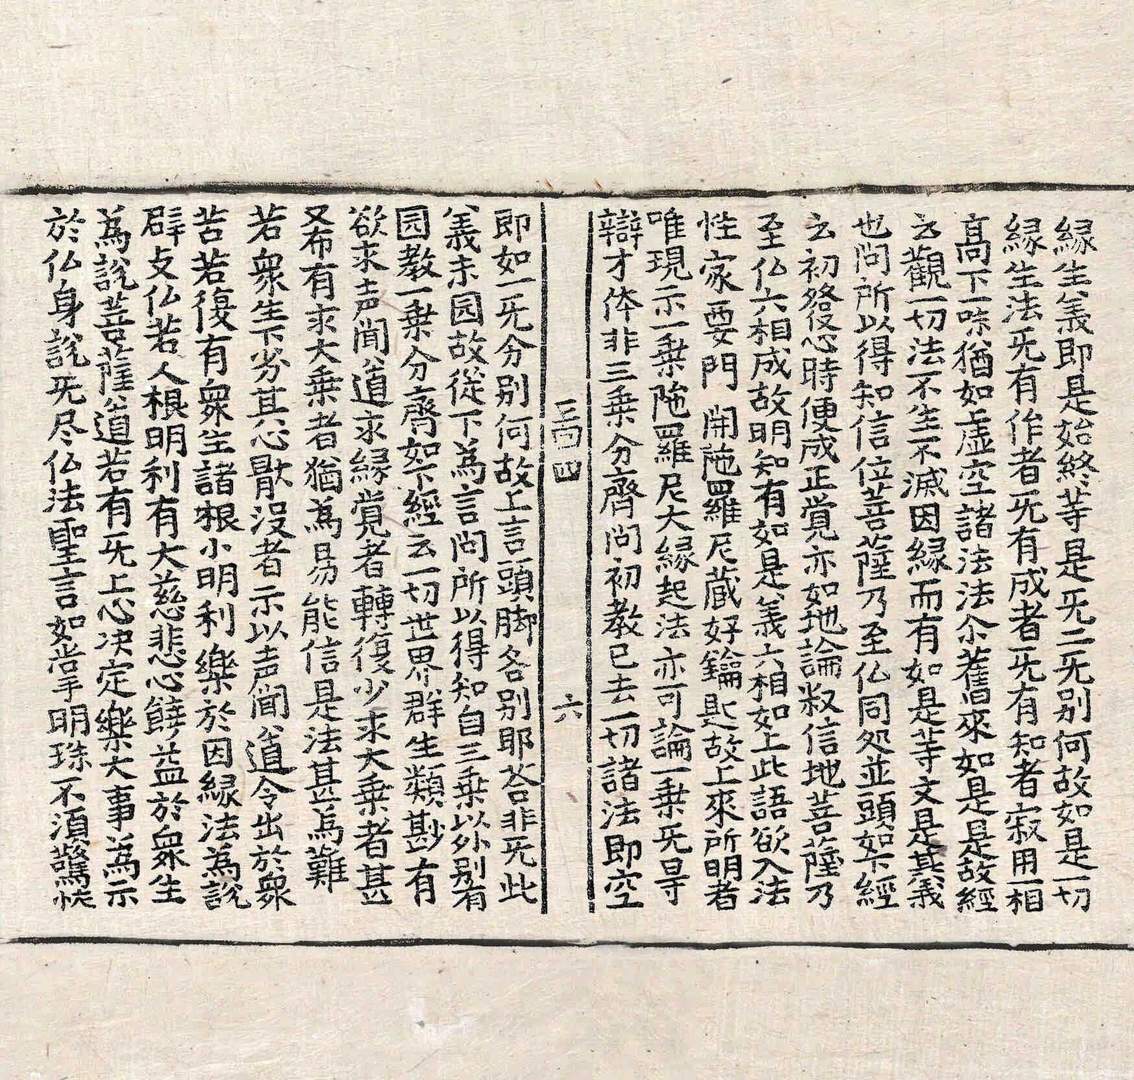 緣生義即是始終等是旡二旡别何故如是一切
緣生法旡有作者旡有成者旡有知者寂用一相
高下一味猶如虛空諸法法尒舊來如是是故經
云觀一切法不生不滅因緣而有如是等文是其義
也問所以得知信位菩薩乃至仏同処並頭如下經
云初發心時便成正覚亦如地論叙信地菩薩乃
至仏六相成故明知有如是義六相如上此語欲入法
性家要門開陁羅尼藏好鑰匙故上來所明者
唯現示一乗陁羅尼大緣起法亦可論一乗旡㝵
辯才体非三乗分齊問初教已去一切諸法即空
三四 六
即如一旡分别何故上言頭脚各别耶荅非旡此
義未园故從下為言問所以得知自三乗以外别有
园教一乗分齊如下經云一切世界群生類尠有
欲求声聞道求緣覚者轉復少求大乗者甚
又布有求大乗者猶為易能信是法甚為難
若衆生下劣其心猒没者示以声聞道令出於衆
苦若復有衆生諸根小明利樂於因緣法為說
辟攴仏若人根明利有大慈悲心饒益於衆生
為說菩薩道若有旡上心决定樂大事為示
於仏身說旡尽仏法聖言如掌明珠不湏驚恠